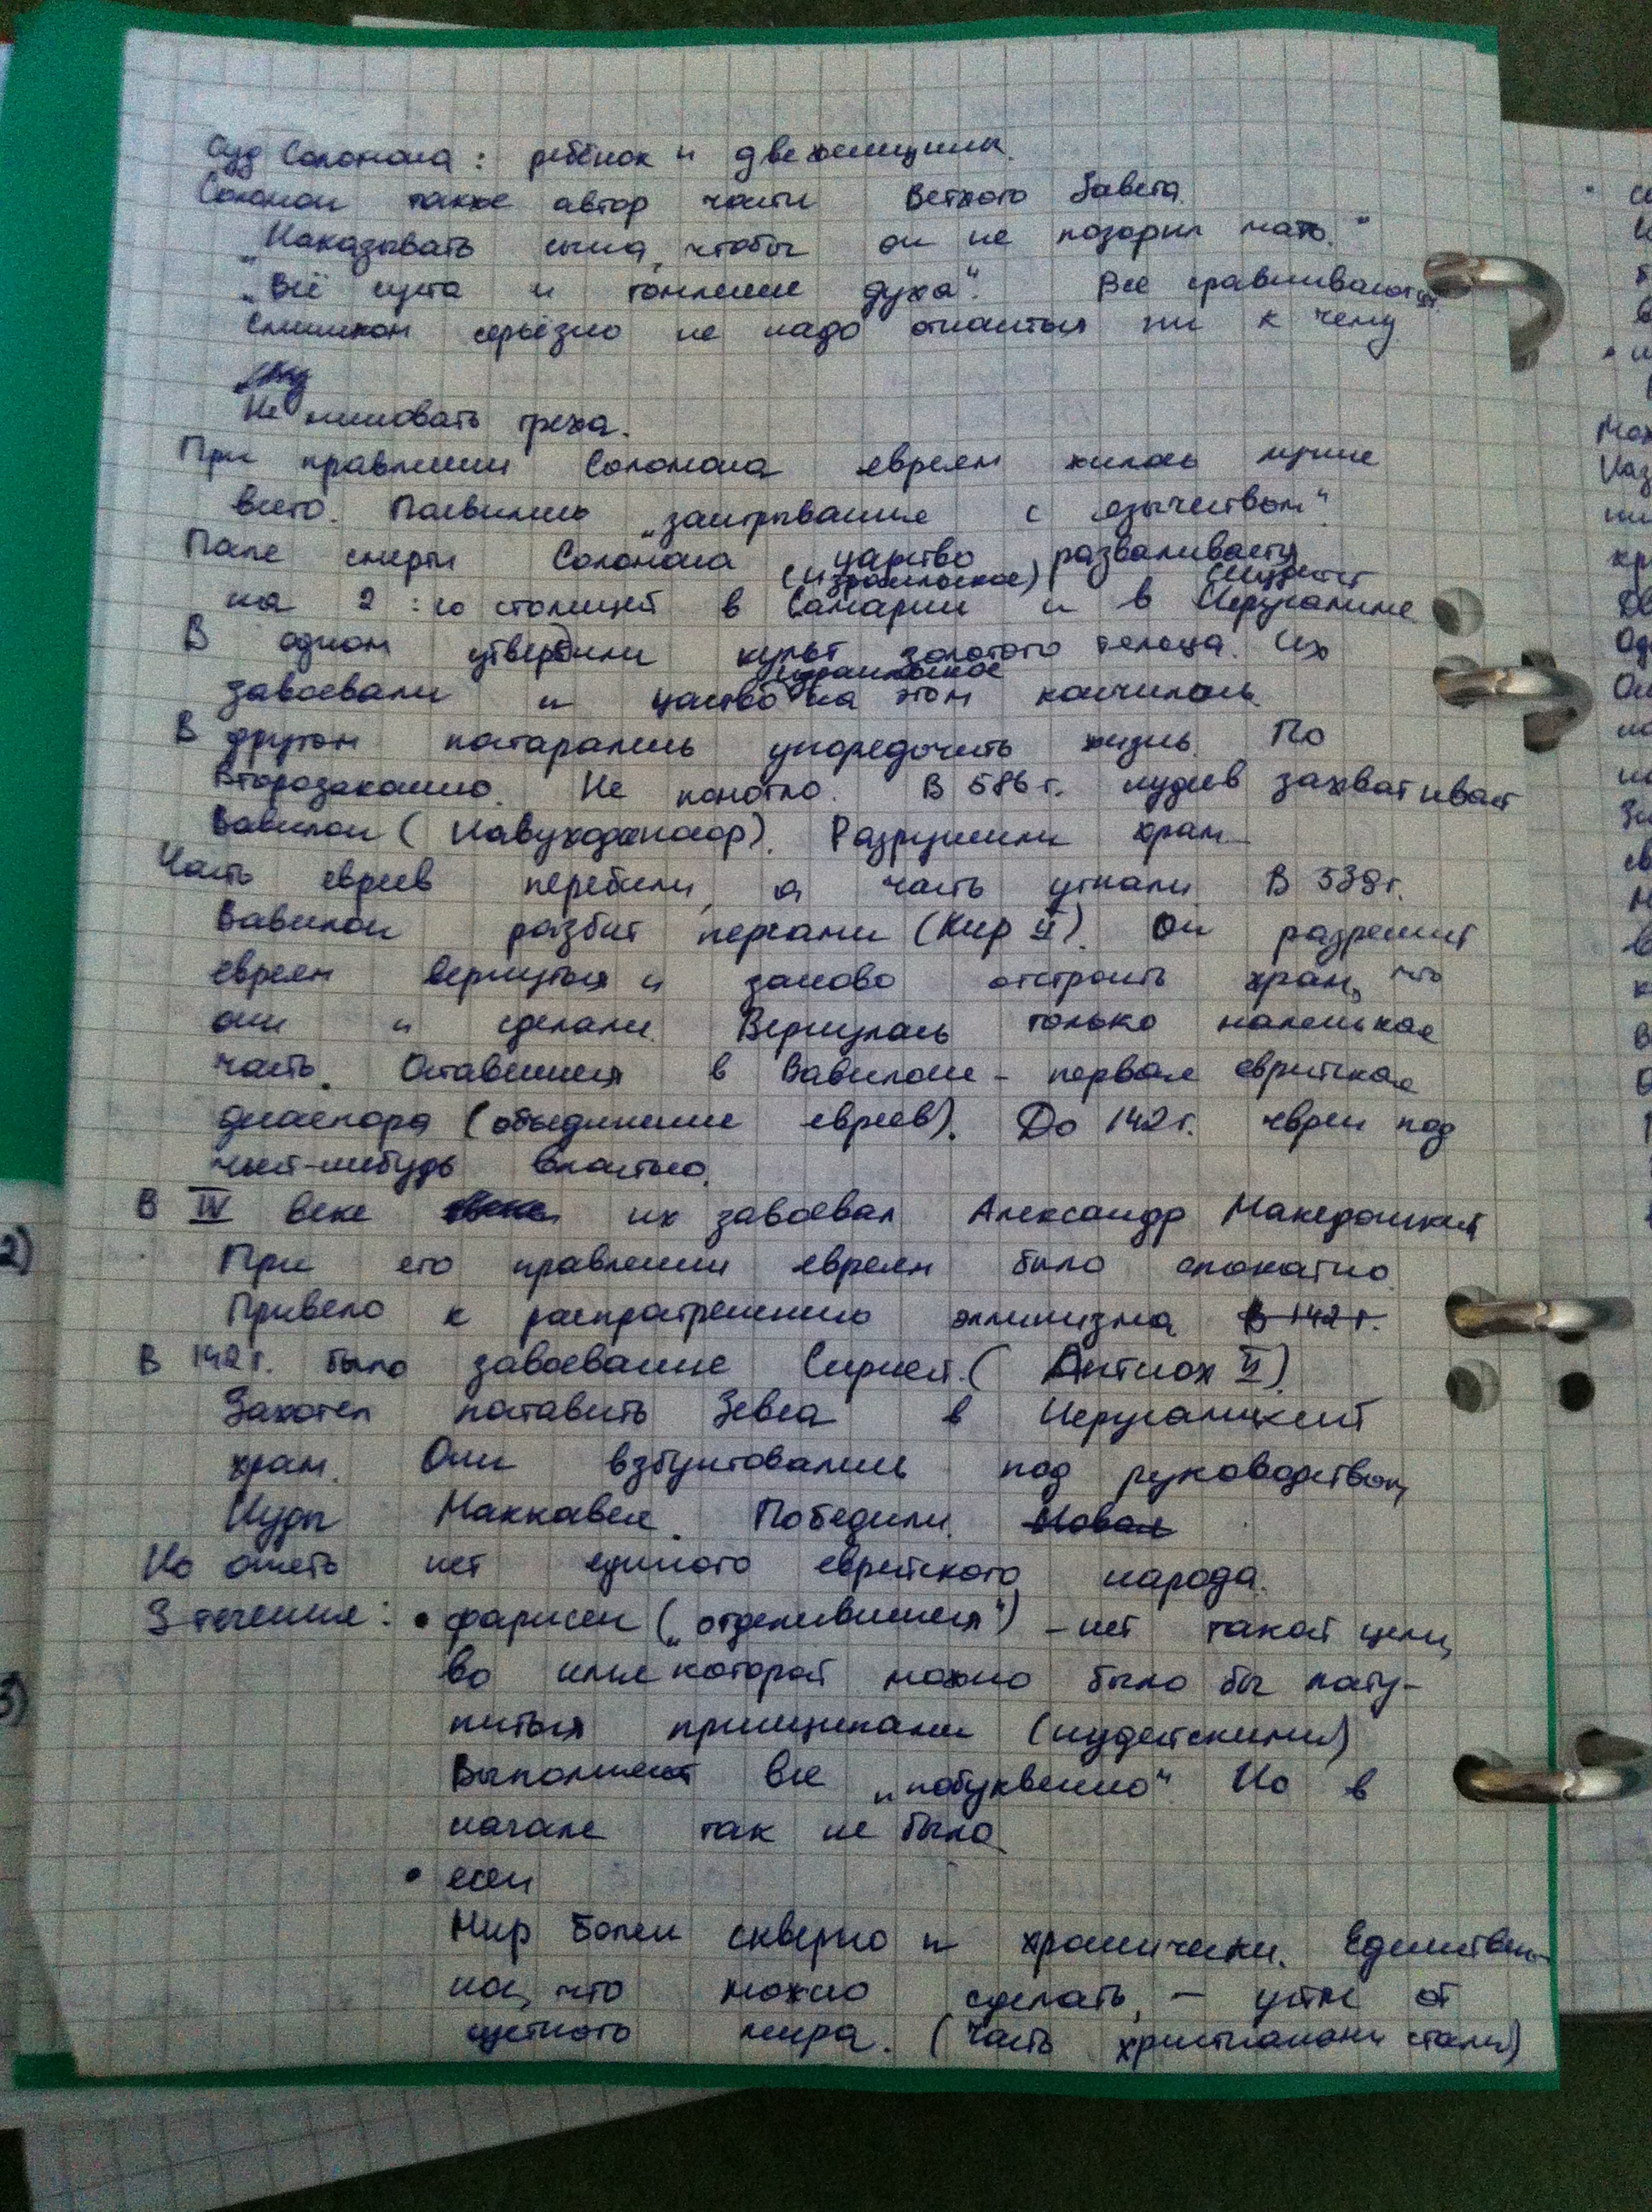 Суд Соломона: ребёнок и две женщины.
Соломон также автор части Ветхого Завета.
„Наказывать сына, чтобы он не позорил мать."
„Всё суета и томление духа". Все сравниваются.
Слишком серьёзно не надо относиться ни к чему.
Не миновать греха.
При правлении Соломона евреям жилось лучше
всего. Появились „заигрывание с язычеством".
После смерти Соломона царство разваливается
(Израильское)
на 2: со столицей в Самарии и в Иерусалиме
В одном утвердили культ золотого тельца. Их
Израильское
завоевали и царство на этом кончилось.
В другом постарались упорядочить жизнь. По
Второзаконию. Не помогло. В 586 г. иудеев захватывает
Вавилон (Навуходоносор). Разрушили храм.
Часть евреев перебили, а часть угнали. В 539 г.
Вавилон разбит персами (Кир II). Он разрешит
евреям вернуться и заново отстроить храм, что
они и сделали. Вернулась только маленькая
часть. Оставшиеся в Вавилоне – первая еврейская
диаспора (объединение евреев). До 142 г. евреи под
чьей-нибудь властью.
В IV веке их завоевал Александр Македонский
При его правлении евреям было спокойно.
Привело к распространению эллинизма В 142 г.
В 142 г. было завоевание Сирией. (Антиох II).
Захотел поставить Зевса в Иерусалимский
храм. Они взбунтовались под руководством
Иуды Маккавея. Победили. Новая
Но опять нет единого еврейского народа.
3 течения: • фарисеи („отделившиеся") – нет такой цели,
во имя которой можно было бы посту-
питься принципами (иудейскими)
Выполняют все „побуквенно". Но в
начале так не было
• есеи
Мир болен скверно и хронически. Единствен-
ное, что можно сделать, – уйти от
суетного мира. (Часть христианами стали)